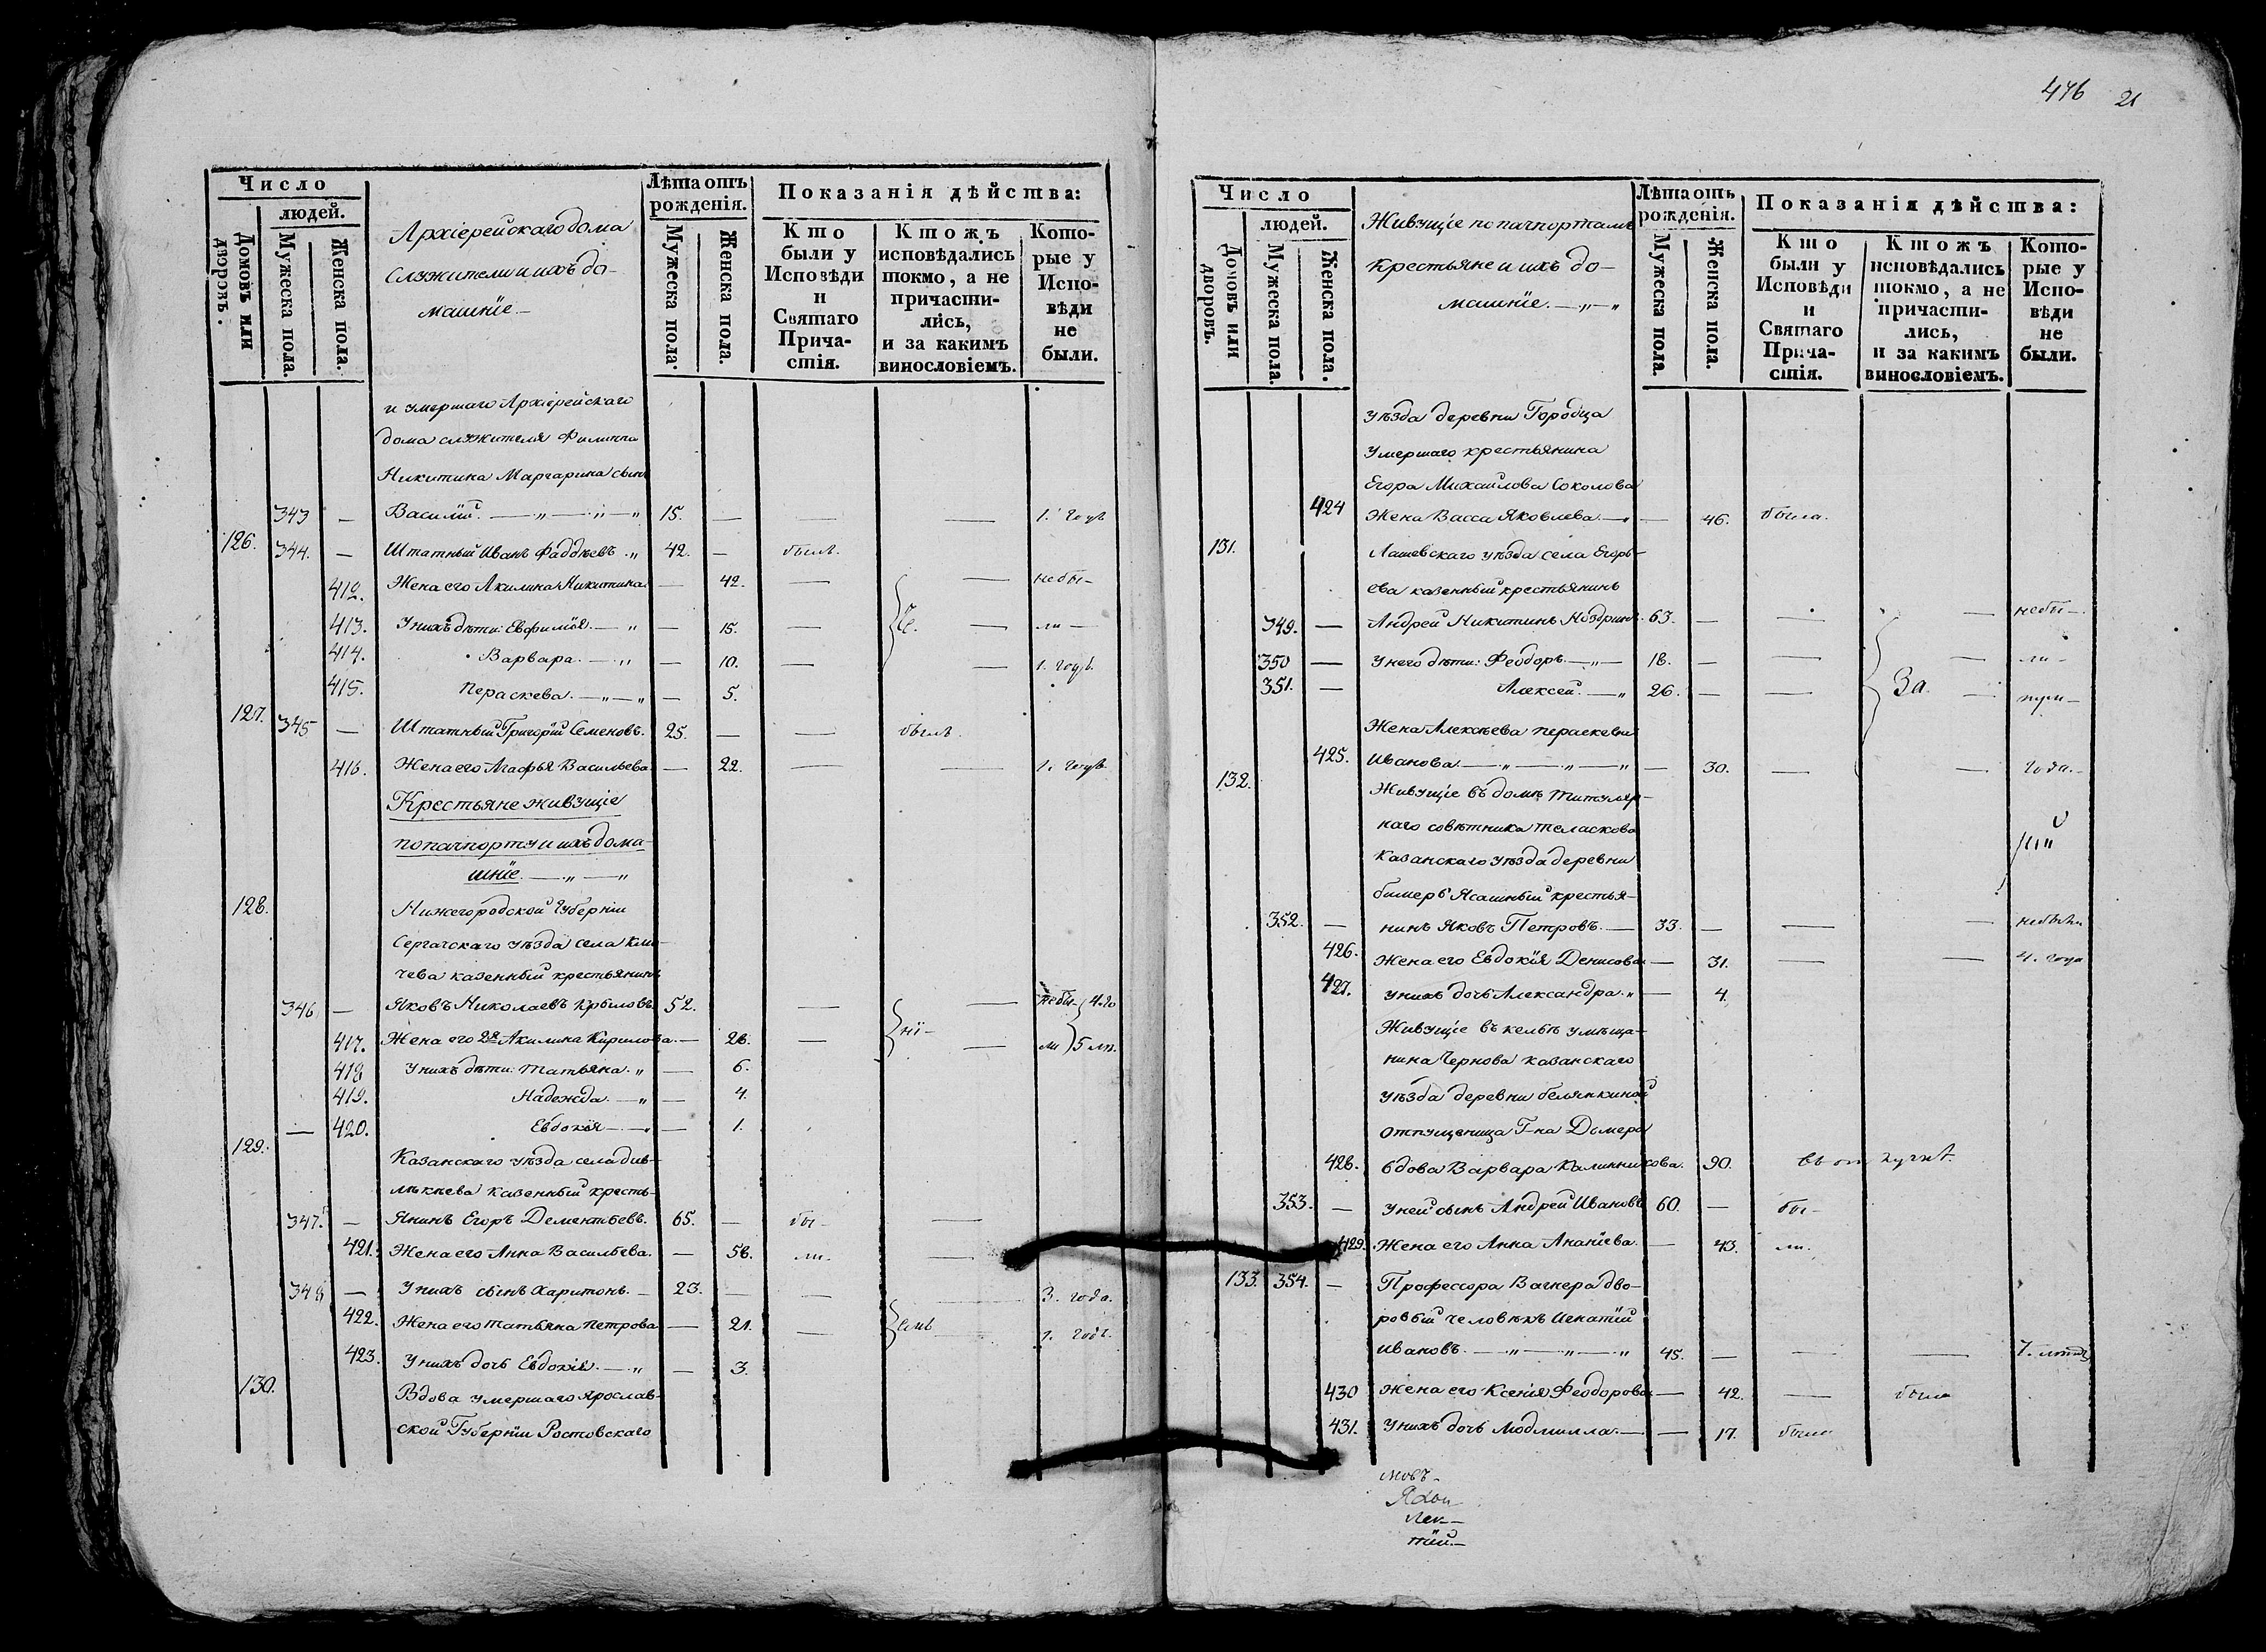 Число
людей.
Домовъ или дворовъ.
Мужеска пола.
Женска пола.
Архіерейскаго дома
служители и ихъ до-
машніе.
Лѣта отъ рожденія.
Мужеска пола.
Женска пола.
Показанія дѣйства:
Кто были у Исповѣди и Святаго Прича-стія.
Ктожъ исповѣдались токмо, а не причасти-лись, и за какимъ винословіемъ.
Кото-рые у Испо-вѣди не были.
и умершаго Архіерейскаго
дома служителя Филиппа
Никитина Маргарина сынъ
343 — Василій. — 15. — — 1. годъ
126. 344. — Штатный Иванъ Фаддѣевъ 42. — былъ.
412. Жена его Акилина Никитина — 42. — — небы-
413. У нихъ дѣти: Евфимія — 15. — — ли —
414. Варвара. — 10. — — 1. годъ.
415. Пераскева. — 5.
127. 345 — Штатный Григорій Семеновъ. 25. — — былъ.
416. Жена его Агафья Васильева — 22. — — 1. годъ
Крестьяне живущіе
по пачпорту и ихъ дома-
шніе.
128. Нижегородской Губерніи
Сергачскаго уѣзда села
чева казенный крестьянинъ
346 — Яковъ Николаевъ Крыловъ 52. — — небы- 4. го
417. Жена его 2я Акилина Кирилова. — 26. — ні- — ли 5 лѣ.
418 У нихъ дѣти: Татьяна. — 6.
419. Надежда. — 4.
— 420. Евдокія — 1.
129. Казанскаго уѣзда села
казенный кресть-
347. — янинъ Егоръ Дементьевъ. 65. — бы- —
421. Жена его Анна Васильева. — 56. ли. —
348 — У нихъ сынъ Харитонъ. — 23. — — 3. года.
422. Жена его Татьяна Петрова — 21. — — 1. годъ.
423. У нихъ дочь Евдокія. — 3.
130. Вдова умершаго Ярослав-
ской Губерніи Ростовскаго
476 21
Число
людей.
Домовъ или дворовъ.
Мужеска пола.
Женска пола.
Живущіе по пачпортамъ
крестьяне и ихъ до-
машніе.
Лѣта отъ рожденія.
Мужеска пола.
Женска пола.
Показанія дѣйства:
Кто были у Исповѣди и Святаго Прича-стія.
Ктожъ исповѣдались токмо, а не причасти-лись, и за какимъ винословіемъ.
Кото-рые у Испо-вѣди не были.
уѣзда деревни Городца
умершаго крестьянина
Егора Михаилова Соколова
424 Жена Васса Яковлева. — 46. была.
131. Лашевскаго уѣзда села Егорь-
ева казенный крестьянинъ
349. — Андрей Никитинъ Ноздринъ. 63. — — — небы-
350 — У него дѣти: Феодоръ. — 18. — — — ли-
351. — Алексей. — 26. — — За. — три-
Жена Алексѣева Пераскева
425. Иванова. — 30. — — года.
132. Живущіе въ домѣ титуляр-
наго совѣтника
Казанскаго уѣзда деревни
бимеръ Ясашный крестья-
352. — нинъ Яковъ Петровъ. — 33. — — — небыли
426. Жена его Евдокія Денисова — 31. — — 4. года
427. У нихъ дочь Александра. — 4.
Живущіе въ кельѣ у мѣща-
нина Чернова Казанскаго
уѣзда деревни белянкиной
отпущеница Г-на Домера
428. вдова Варвара Калинникова. 90.
353. — У ней сынъ Андрей Ивановъ 60. — бы-
429. Жена его Анна Ананіева. — 43. ли.
133. 354. — Профессора Вагнера дво-
ровый человѣкъ Игнатій
Ивановъ. — 45. — — — 7. лѣтъ
430 Жена его Ксенія Феодорова — 42. — была
431. У нихъ дочь Людмилла. — 17. была